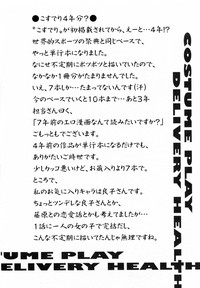 ●こすでり4年分?●
"こすでり"が初掲載されてから、えーと…4年!?
世界的スポーツの祭典と同じペースで、
やっと単行本になりました。
なにせ不定期にポツポツと描いていたので、
なかなか1冊分がたまりませんでした。
いえ、7本しか…たまってないんです(汗)
今のペースでいくと10本まで…あと3年
担谷さん曰く、
「7年前のエロ漫画なんて読みたいですか?」
ごもっともでございます。
4年前の作品が単行本になるだけでも、
ありがたいご時世です。
少しカッコ悪いけど、お蔵入りより7本で。
ところで、
私のお気に入りキャラは良子さんです。
ちょっとツンデレな良子さんとか、
藤原との恋愛話とかも考えてましたが…
1話に一人の女の子で完結だし、
こんな不定期に描いてたんじゃ無理ですね。
COSTUME PLAY
DELIVERY HEALTH
TUME PLAY
DELIVERY HEALTH